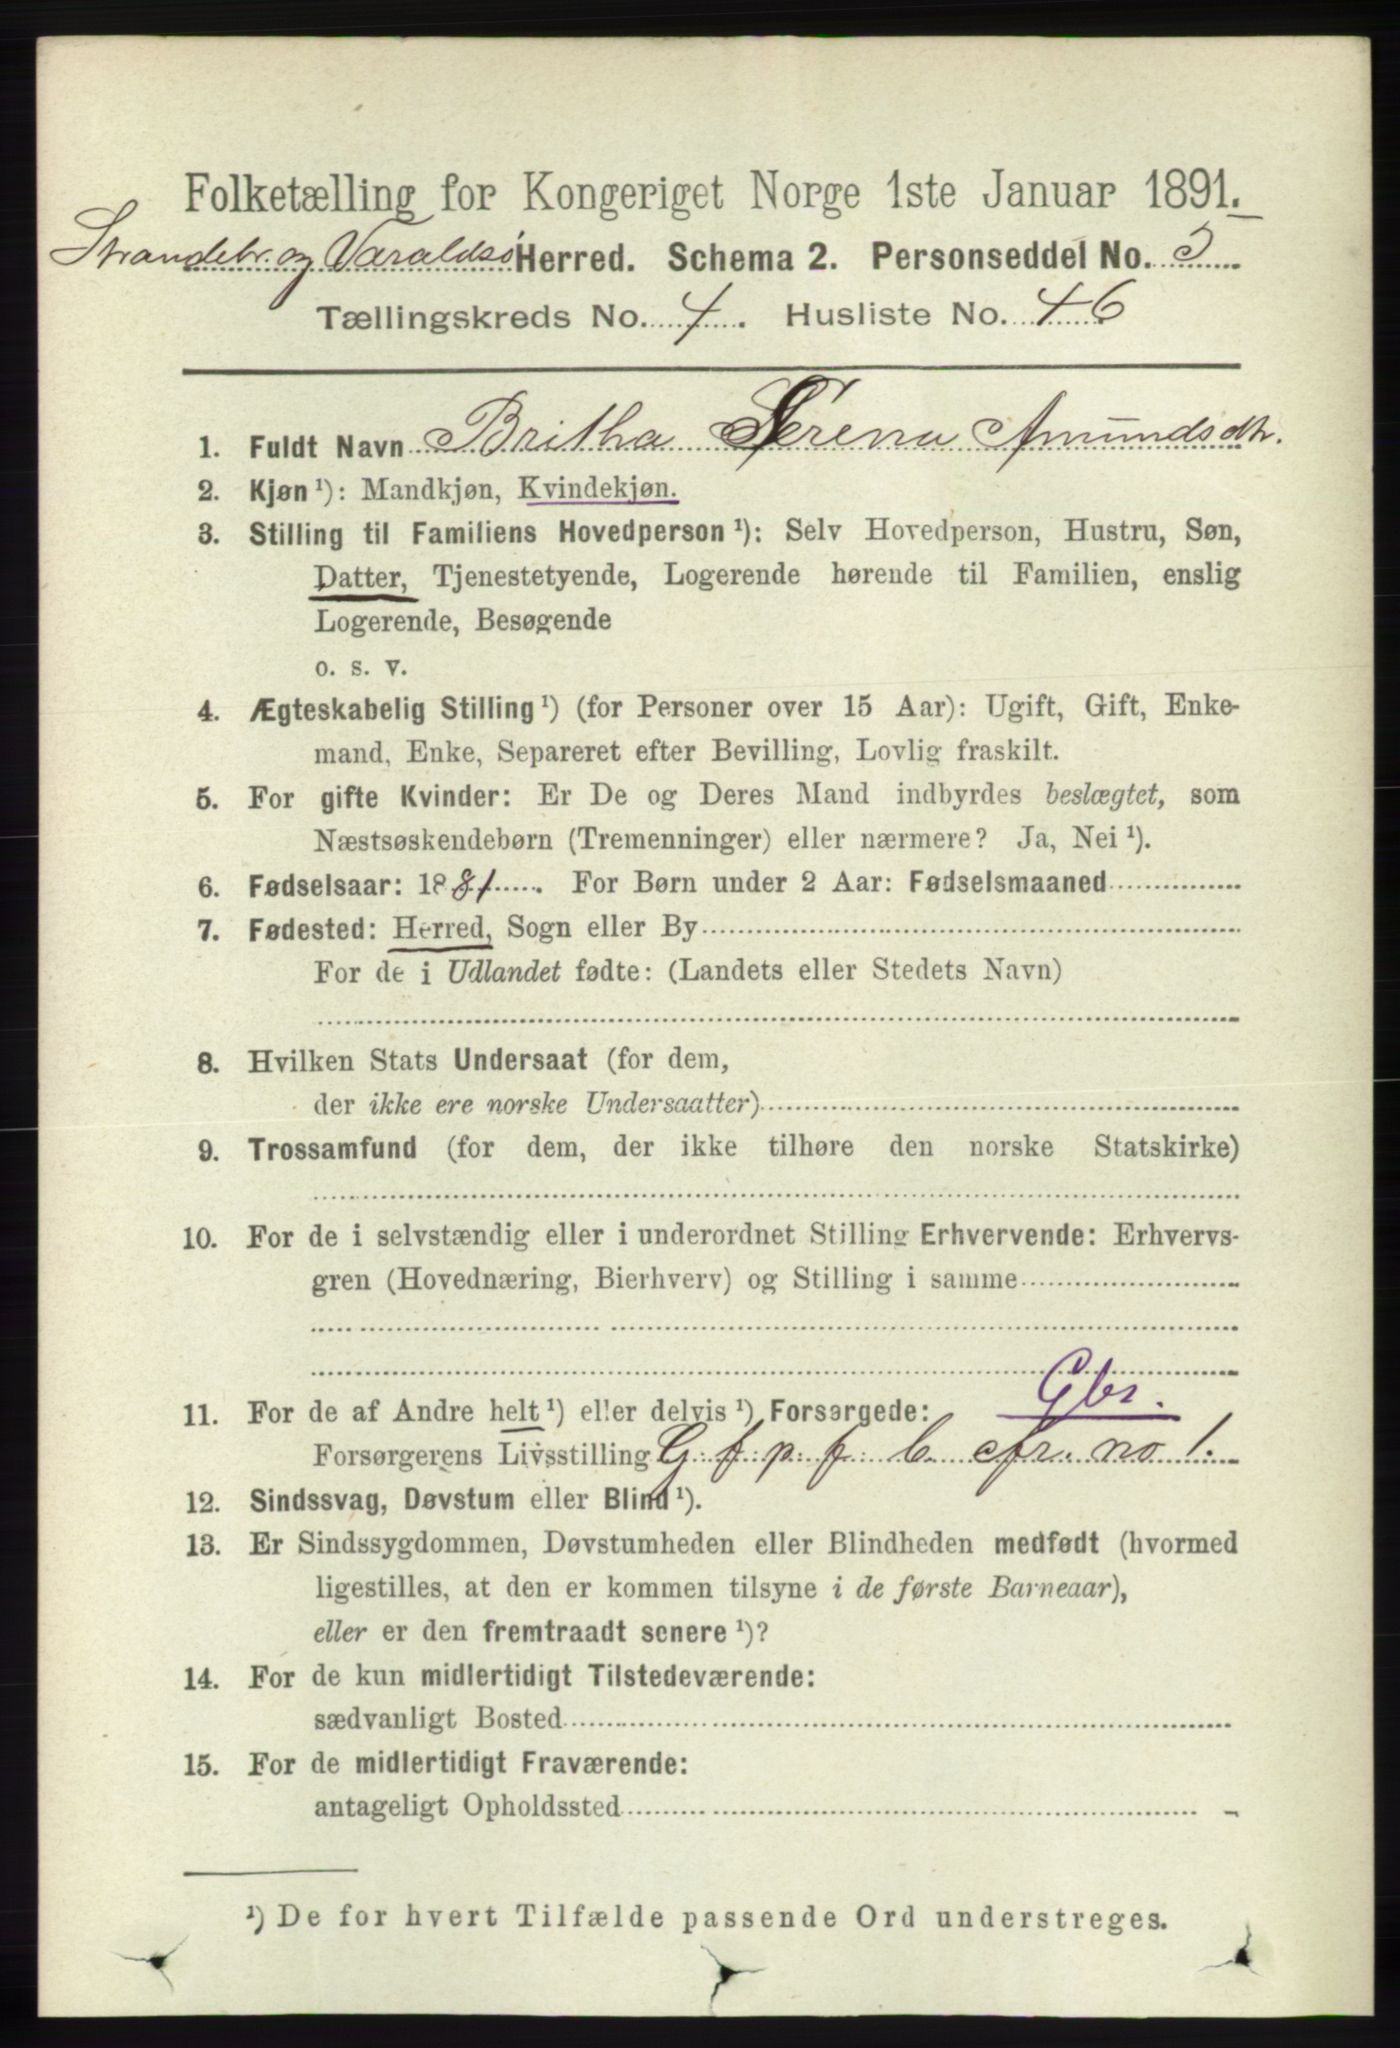 Folketælling for Kongeriget Norge 1ste Januar 1891.
Strandebr. og Varaldsø Herred. Schema 2. Personseddel No. 3
Tællingskreds No. 4. Husliste No. 46
1. Fuldt Navn Britha Serena Amundsdtr.
2. Kjøn ¹): Mandkjøn, Kvindekjøn.
3. Stilling til Familiens Hovedperson ¹): Selv Hovedperson, Hustru, Søn,
Datter, Tjenestetyende, Logerende hørende til Familien, enslig
Logerende, Besøgende
o. s. v.
4. Ægteskabelig Stilling ¹) (for Personer over 15 Aar): Ugift, Gift, Enke-
mand, Enke, Separeret efter Bevilling, Lovlig fraskilt.
5. For gifte Kvinder: Er De og Deres Mand indbyrdes beslægtet, som
Næstsøskendebørn (Tremenninger) eller nærmere? Ja, Nei ¹).
6. Fødselsaar: 1881. For Børn under 2 Aar: Fødselsmaaned
7. Fødested: Herred, Sogn eller By
For de i Udlandet fødte: (Landets eller Stedets Navn)
8. Hvilken Stats Undersaat (for dem,
der ikke ere norske Undersaatter)
9. Trossamfund (for dem, der ikke tilhøre den norske Statskirke)
10. For de i selvstændig eller i underordnet Stilling Erhvervende: Erhvervs-
gren (Hovednæring, Bierhverv) og Stilling i samme
Gbr.
11. For de af Andre helt ¹) eller delvis ¹) Forsørgede:
Forsørgerens Livsstilling G. f. p. f. b. cfr. no 1.
12. Sindssvag, Døvstum eller Blind ¹).
13. Er Sindssygdommen, Døvstumheden eller Blindheden medfødt (hvormed
ligestilles, at den er kommen tilsyne i de første Barneaar),
eller er den fremtraadt senere ¹)?
14. For de kun midlertidigt Tilstedeværende:
sædvanligt Bosted
15. For de midlertidigt Fraværende:
antageligt Opholdssted
¹) De for hvert Tilfælde passende Ord understreges.